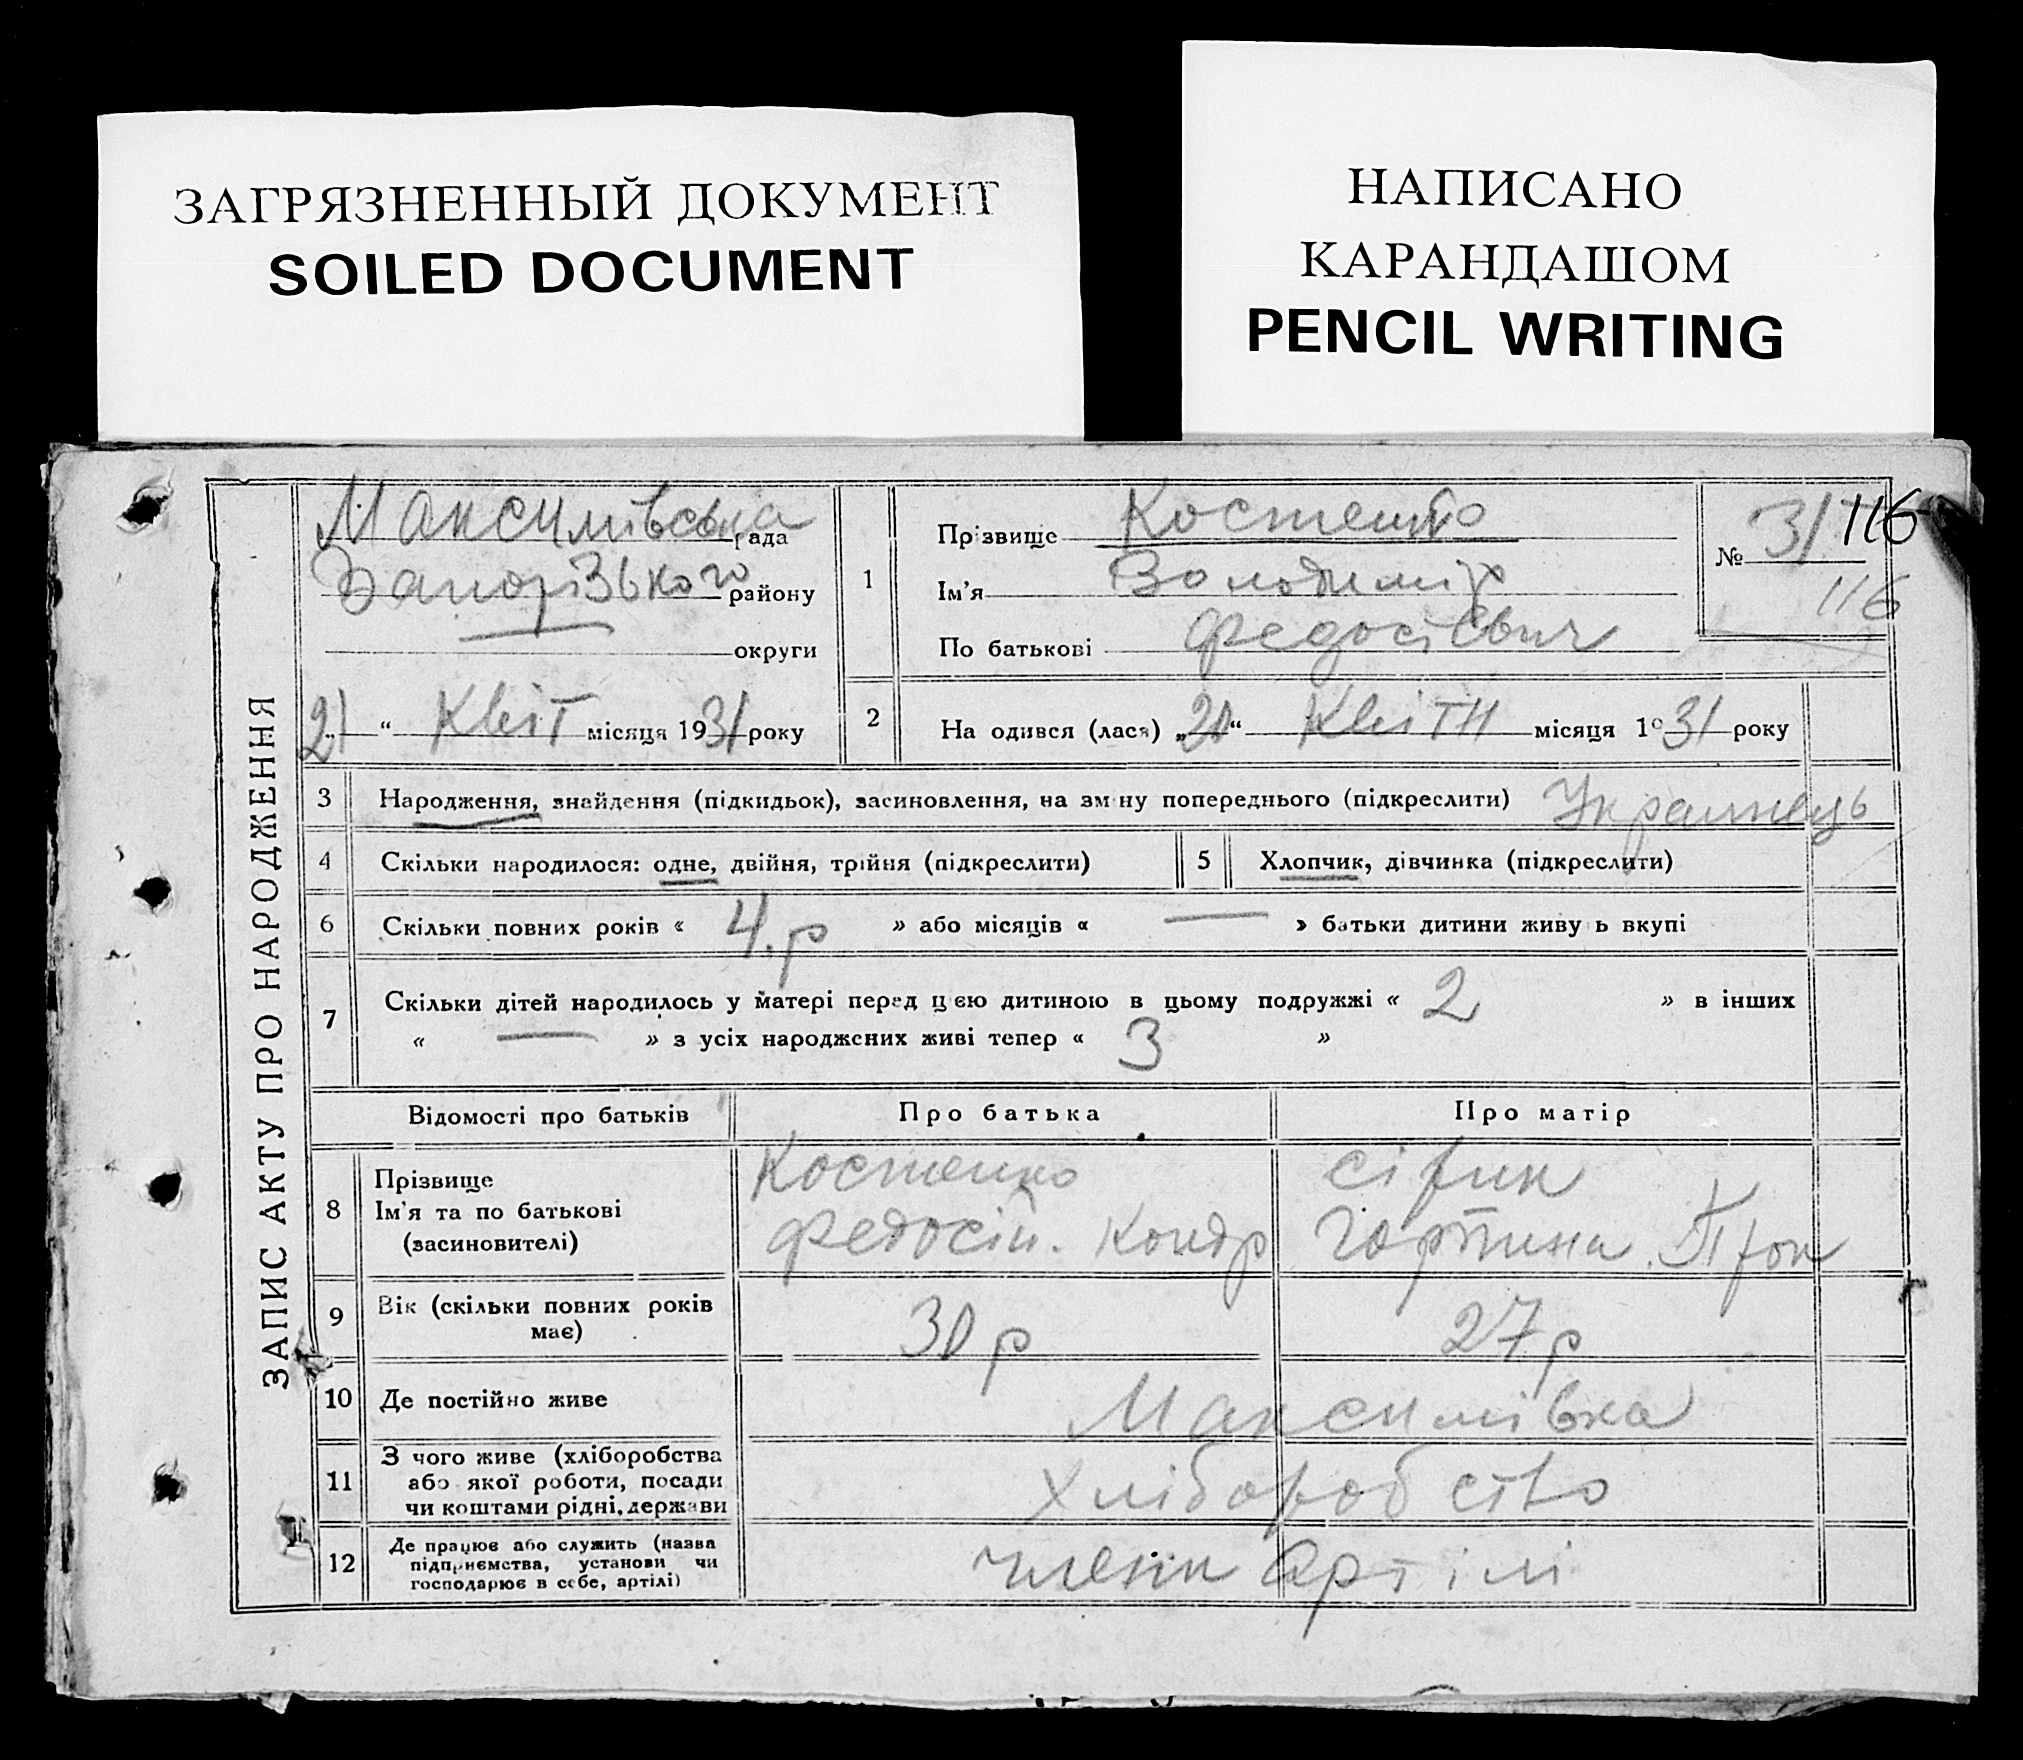 ЗАГРЯЗНЕННЫЙ ДОКУМЕНТ
SOILED DOCUMENT
НАПИСАНО
КАРАНДАШОМ
PENCIL WRITING
ЗАПИС АКТУ ПРО НАРОДЖЕННЯ
Максимівська рада
Запорізького району
округи
21 " Квіт місяця 1931 року
1 Прізвище Костенко
Ім'я Володимір
По батькові Федосієвич
№ 31 116
116
2 На одився (лася) „20" Квітн місяця 1931 року
3 Народження, знайдення (підкидьок), засиновлення, на зміну попереднього (підкреслити) Українець
4 Скільки народилося: одне, двійня, трійня (підкреслити)
5 Хлопчик, дівчинка (підкреслити)
6 Скільки повних років « 4.р » або місяців « — » батьки дитини живу ь вкупі
7 Скільки дітей народилось у матері перед цією дитиною в цьому подружжі « 2 » в інших
« — » з усіх народжених живі тепер « 3 »
Відомості про батьків Про батька Про матір
8 Прізвище
Ім'я та по батькові
(засиновителі)
Костенко
Федосій. Кондр
Сірик
9 Вік (скільки повних років
має)
30 р 27 р
10 Де постійно живе Максимівка
11 З чого живе (хліборобства
або якої роботи, посади
чи коштами рідні, держави
Хліборобство
12 Де працює або служить (назва
підприємства, установи чи
господарює в себе, артілі)
член артілі